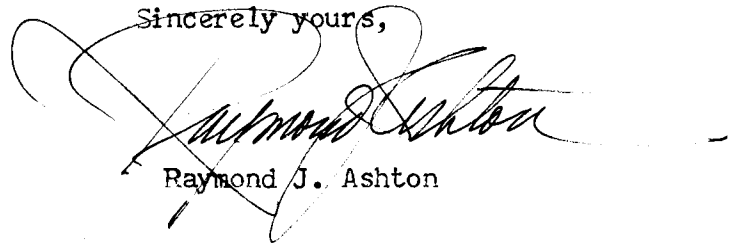 Sincerely yours,
Raymond J Ashton
Raymond J. Ashton